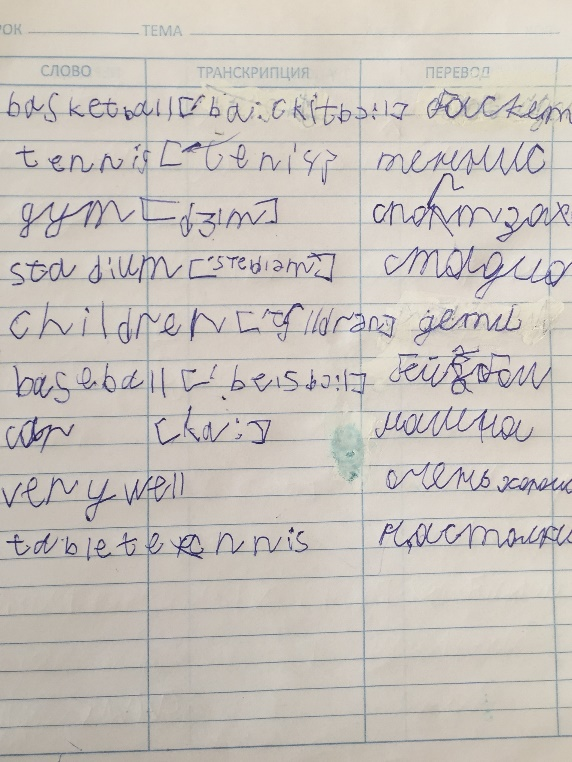 РОК ТЕМА
СЛОВО ТРАНСКРИПЦИЯ ПЕРЕВОД
basketball ['ba:ckitbɔ:l] баскет
tennis ['tenis] теннис
gym [dʒim] спортзал
stadium ['stediam] стадио
children ['tʃildrən] дети
baseball ['beisbɔ:l] бейсбол
car [ka:] машина
very well очень хорош
table tennis настольн